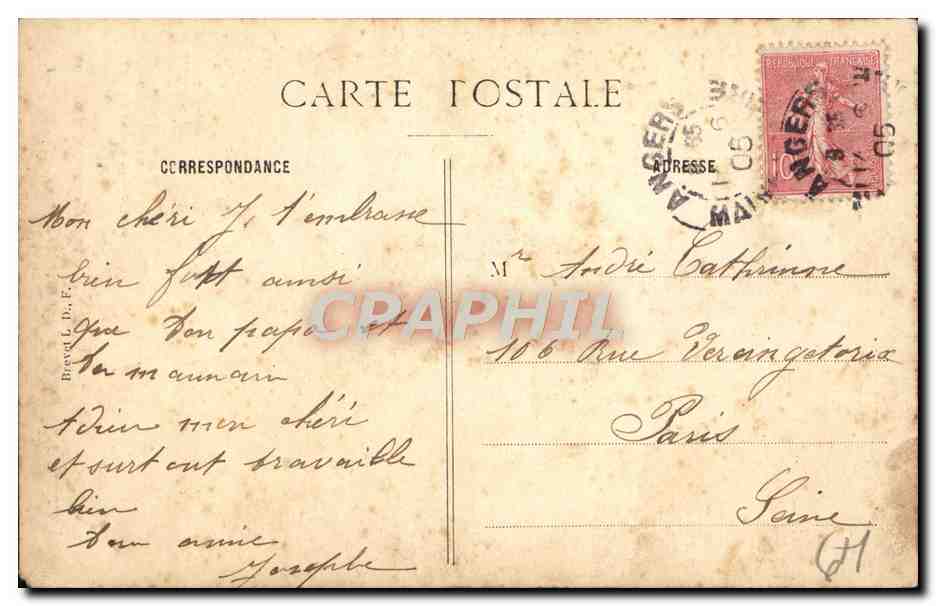 CARTE POSTALE
REPUBLIQUE FRANÇAISE
10
ANGERS
05
ANGERS
05
CORRESPONDANCE
ADRESSE
Mon chéri J. t'embrasse
bien fort ainsi
que ton papa et
ta maman
Adieu mon chéri
et surtout travaille
bien
Ton amie
Josephe
Mr André Cathrinne
106 Rue Vercingetorix
Paris
Seine
Brevet L. D., F.
CPAPHIL
641